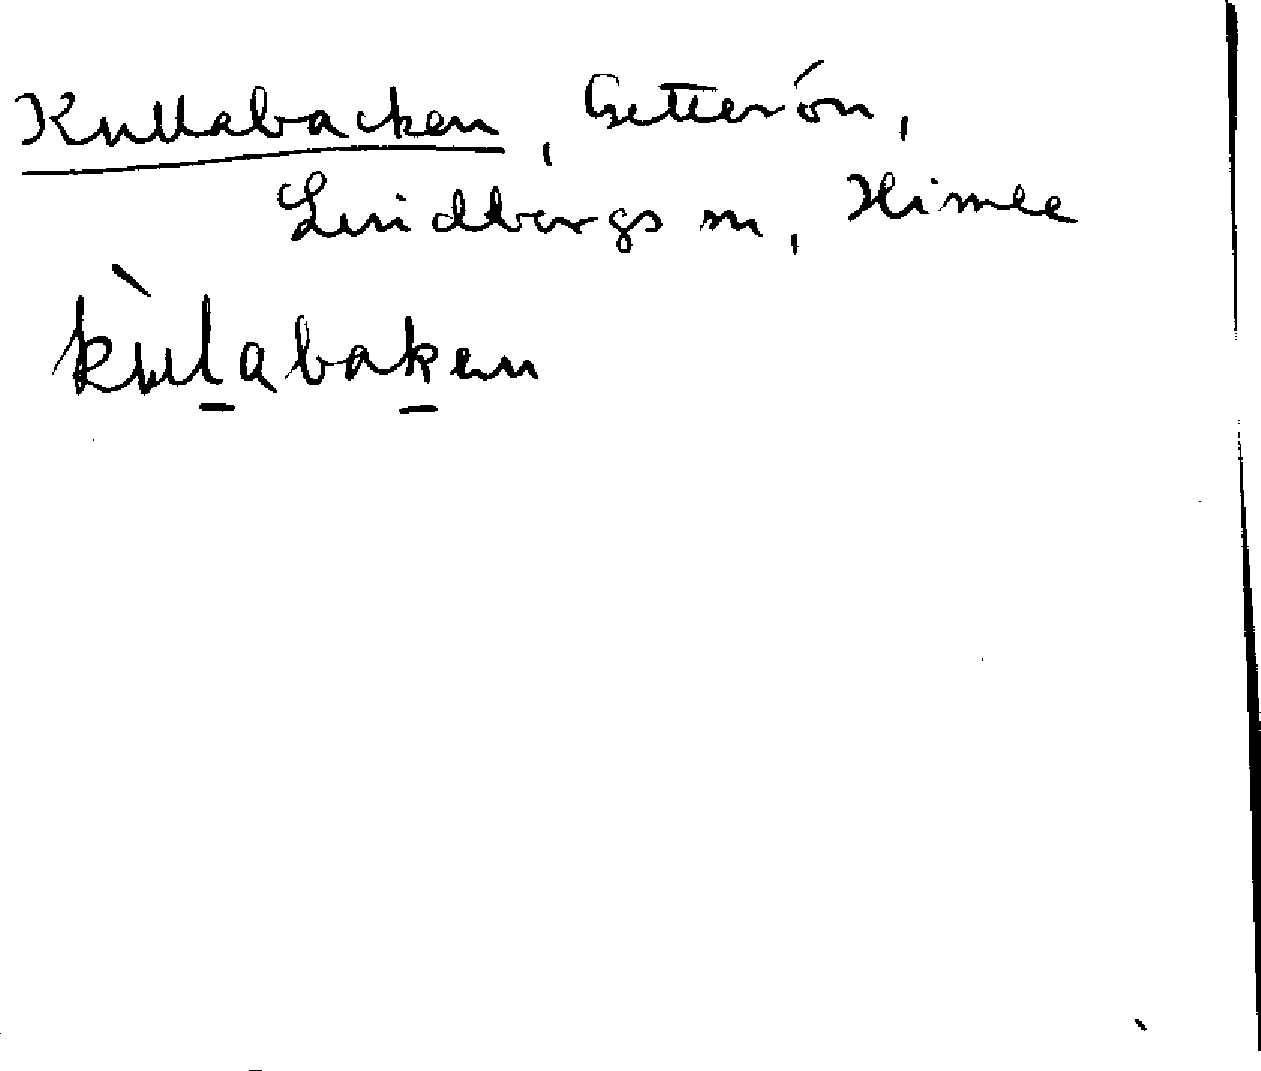 Kullabacken, Getterön,
Lindbergs sn, Himle
kùlabaken